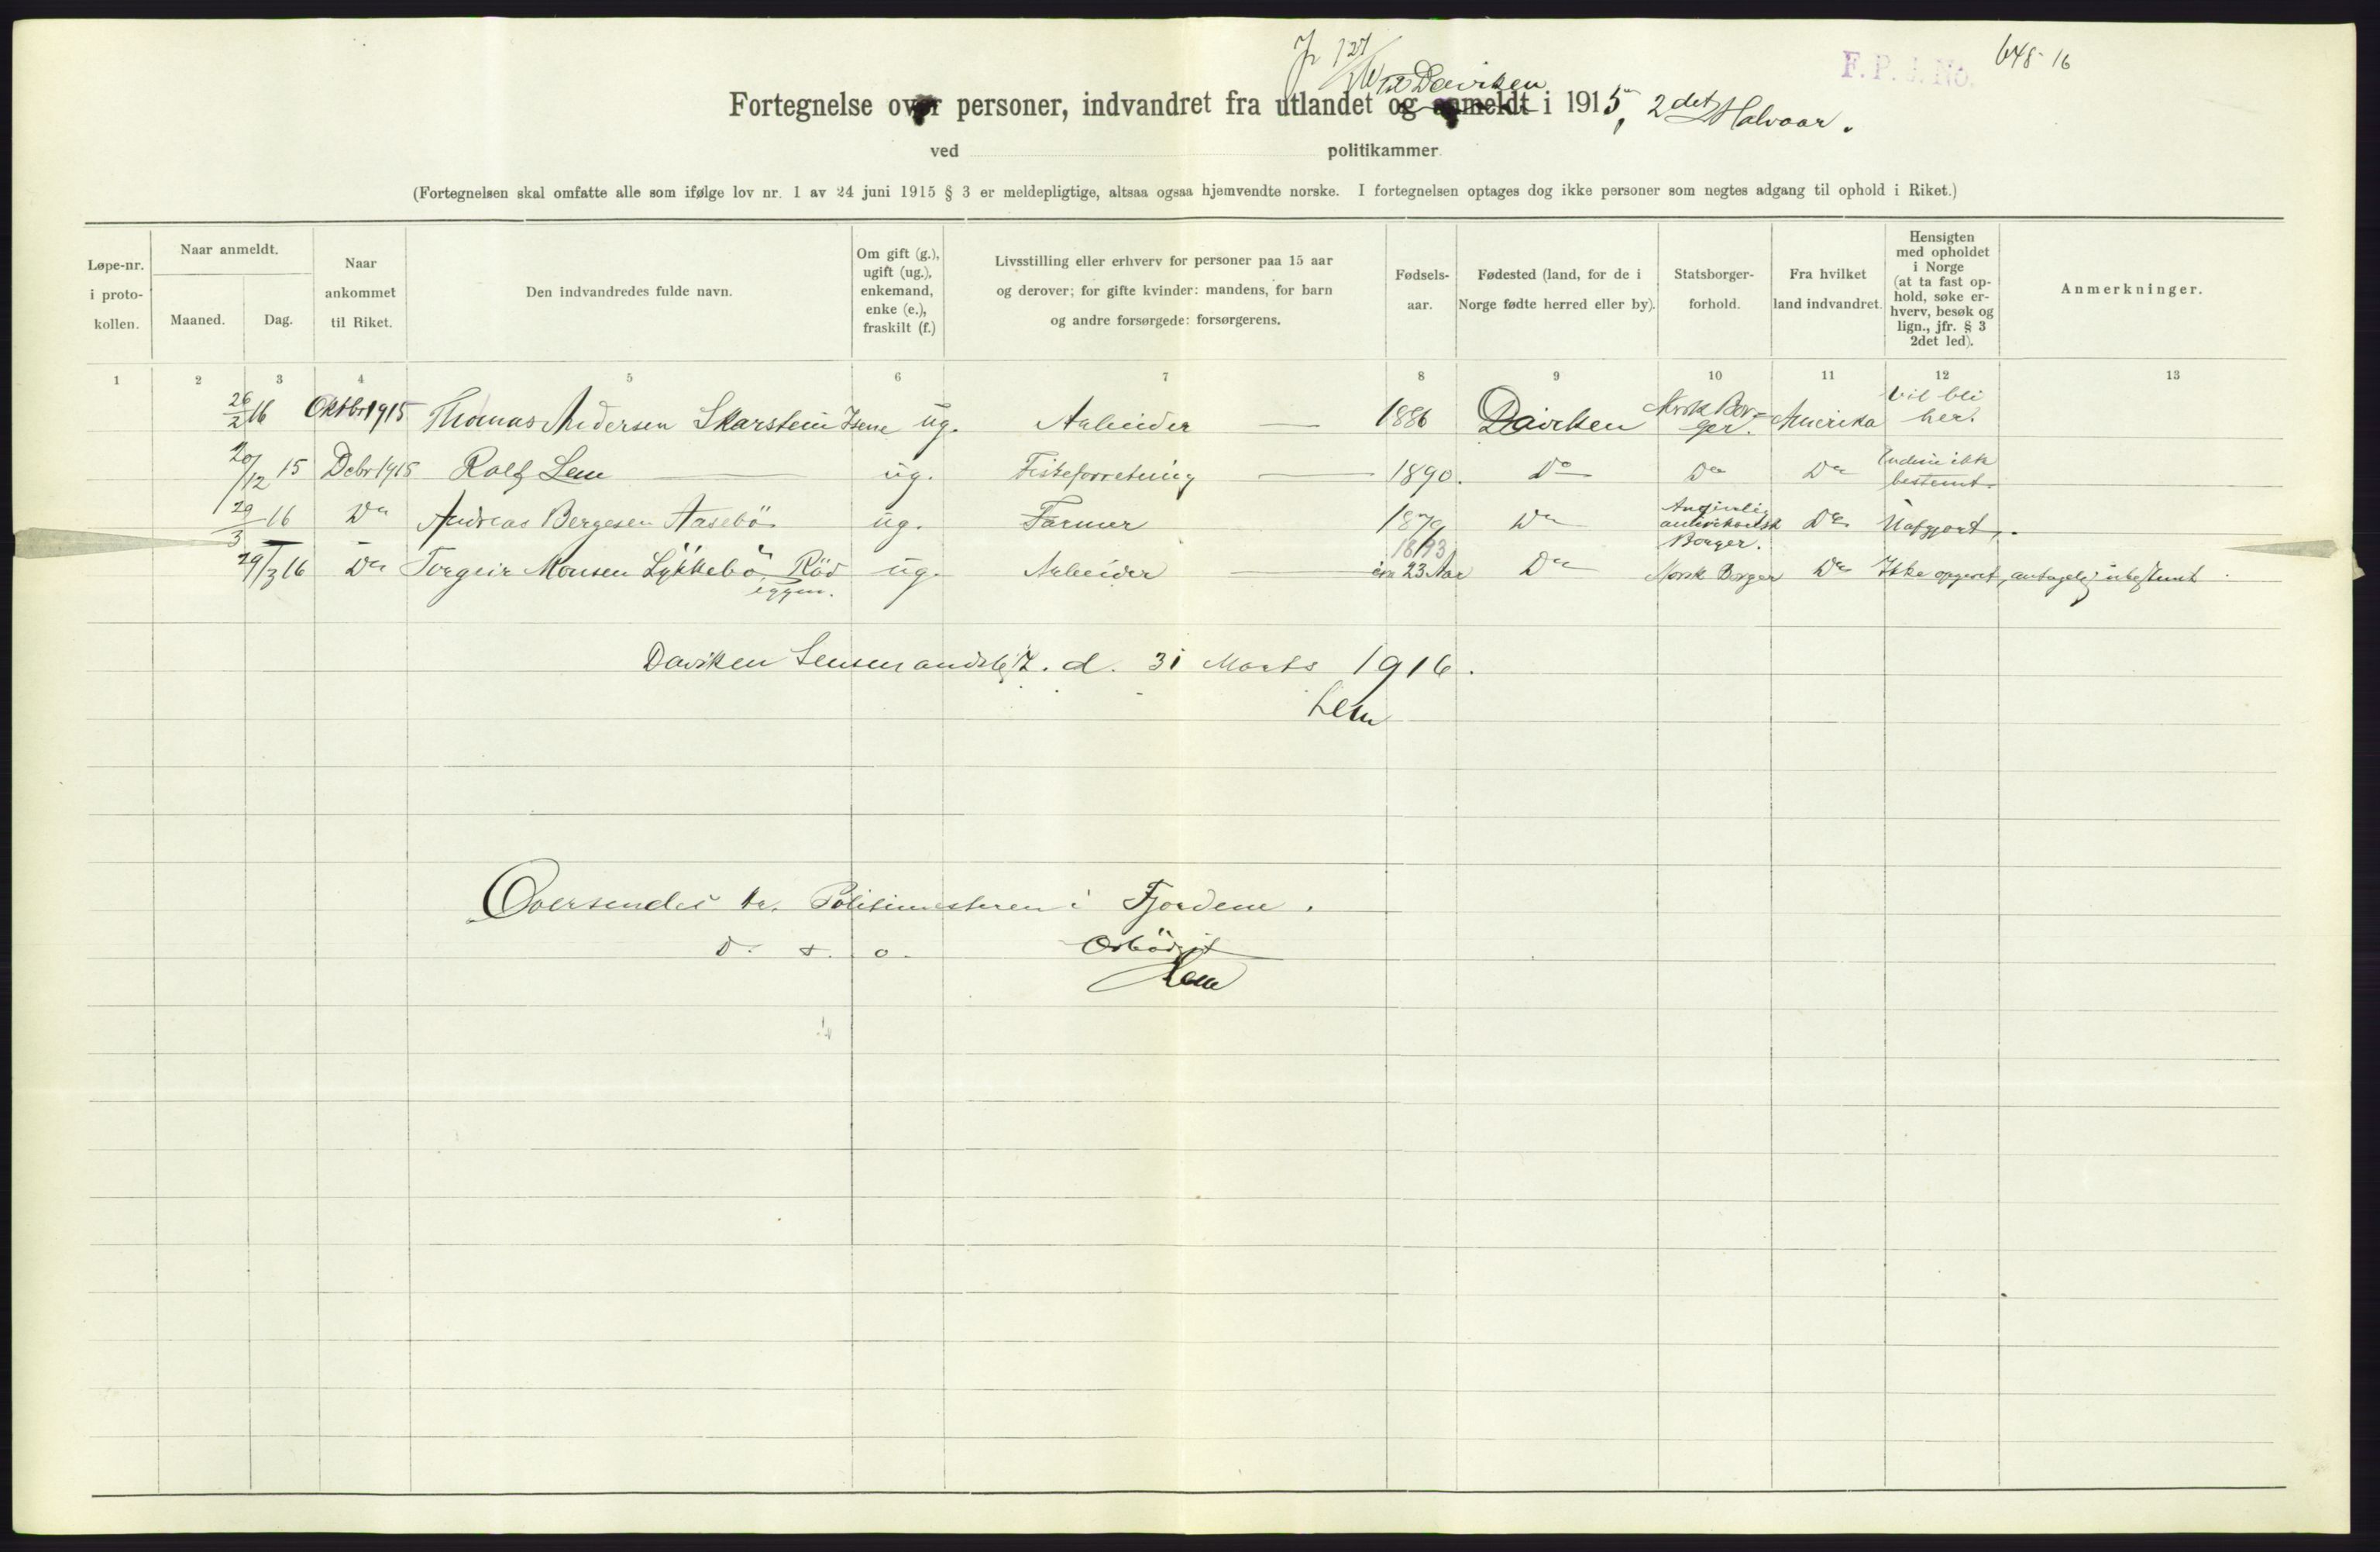 Jr 127/16
F. P. J. No. 648-16
til Daviken
Fortegnelse over personer, indvandret fra utlandet og anmeldt i 1915, 2det Halvaar.
ved politikammer
(Fortegnelsen skal omfatte alle som ifølge lov nr. 1 av 24 juni 1915 § 3 er meldepligtige, altsaa ogsaa hjemvendte norske. I fortegnelsen optages dog ikke personer som negtes adgang til ophold i Riket.)
Løpe-nr.
i proto-
kollen.
Naar anmeldt.
Maaned.
Dag.
Naar
ankommet
til Riket.
Den indvandredes fulde navn.
Om gift (g.),
ugift (ug.),
enkemand,
enke (e.),
fraskilt (f.)
Livsstilling eller erhverv for personer paa 15 aar
og derover; for gifte kvinder: mandens, for barn
og andre forsørgede: forsørgerens.
Fødsels-
aar.
Fødested (land, for de i
Norge fødte herred eller by).
Statsborger-
forhold.
Fra hvilket
land indvandret.
Hensigten
med opholdet
i Norge
(at ta fast op-
hold, søke er-
hverv, besøk og
lign., jfr. § 3
2det led).
Anmerkninger.
1 2 3 4 5 6 7 8 9 10 11 12 13
26/2 16 Oktbr 1915 Thomas Andersen Skarstein Isene ug. Arbeider — 1886 Daviken Norsk Bor-ger. Amerika vil bli her.
20/12 15 Debr 1915 Rolf Lem — ug. Fiskeforretning — 1890. Do Do Do Endnu ikke bestemt.
29/3 16 Do Andreas Bergesen Aasebö ug. Farmer 1879 Do Angivelig amerikansk Borger. Do Uafgjort.
1893
29/3 16 Do Torgeir Monsen Lykkebö, Röd ug. Arbeider — ca 23 Aar Do Norsk Borger Do Ikke opgivet, antagelig ubestemt.
eggen.
Daviken Lensmandsbest. d. 31 Marts 1916.
Lem
Oversendes hr. Politimesteren i Fjordene.
D. s. o. Ærbödigst
Lem